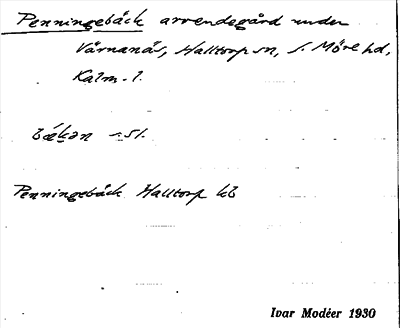 Penningebäck arrendegård under
Värnanäs, Halltorp sn, S. Möre hd,
Kalm. l.
bækən
Penningebäck Halltorp kb
Ivar Modéer 1930